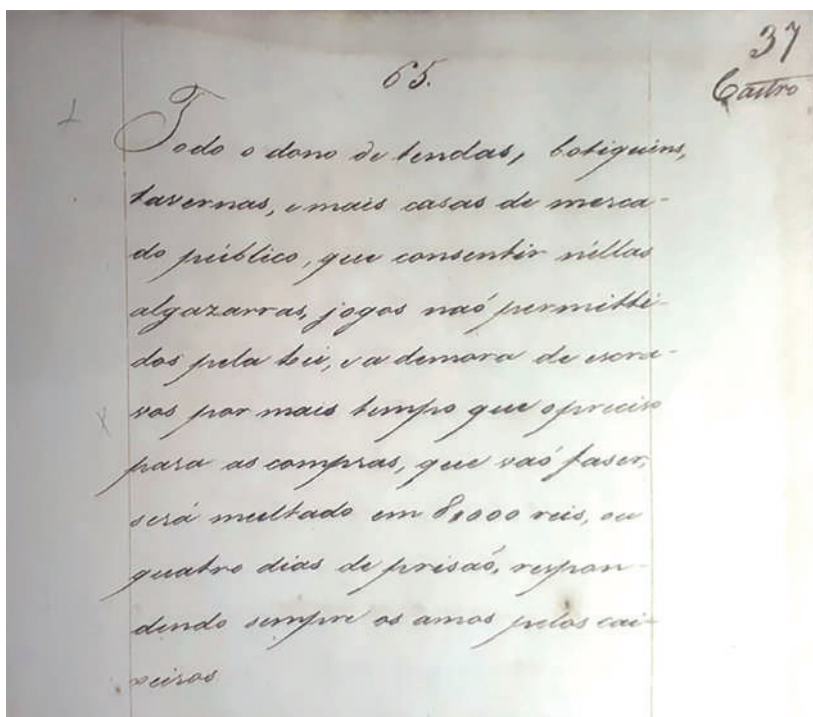 37
Castro
65.
Todo o dono de tendas, botiquins,
tavernas, e mais casas de merca-
do público, que consentir néllas
algazarras, jogos naõ permitti-
dos pela Lei, e a demora de escra-
vos por mais tempo que o preciso
para as compras, que vaõ faser,
será multado em 8,000 reis, ou
quatro dias de prisaõ, respon-
dendo sempre os amos pelos cai-
xeiros